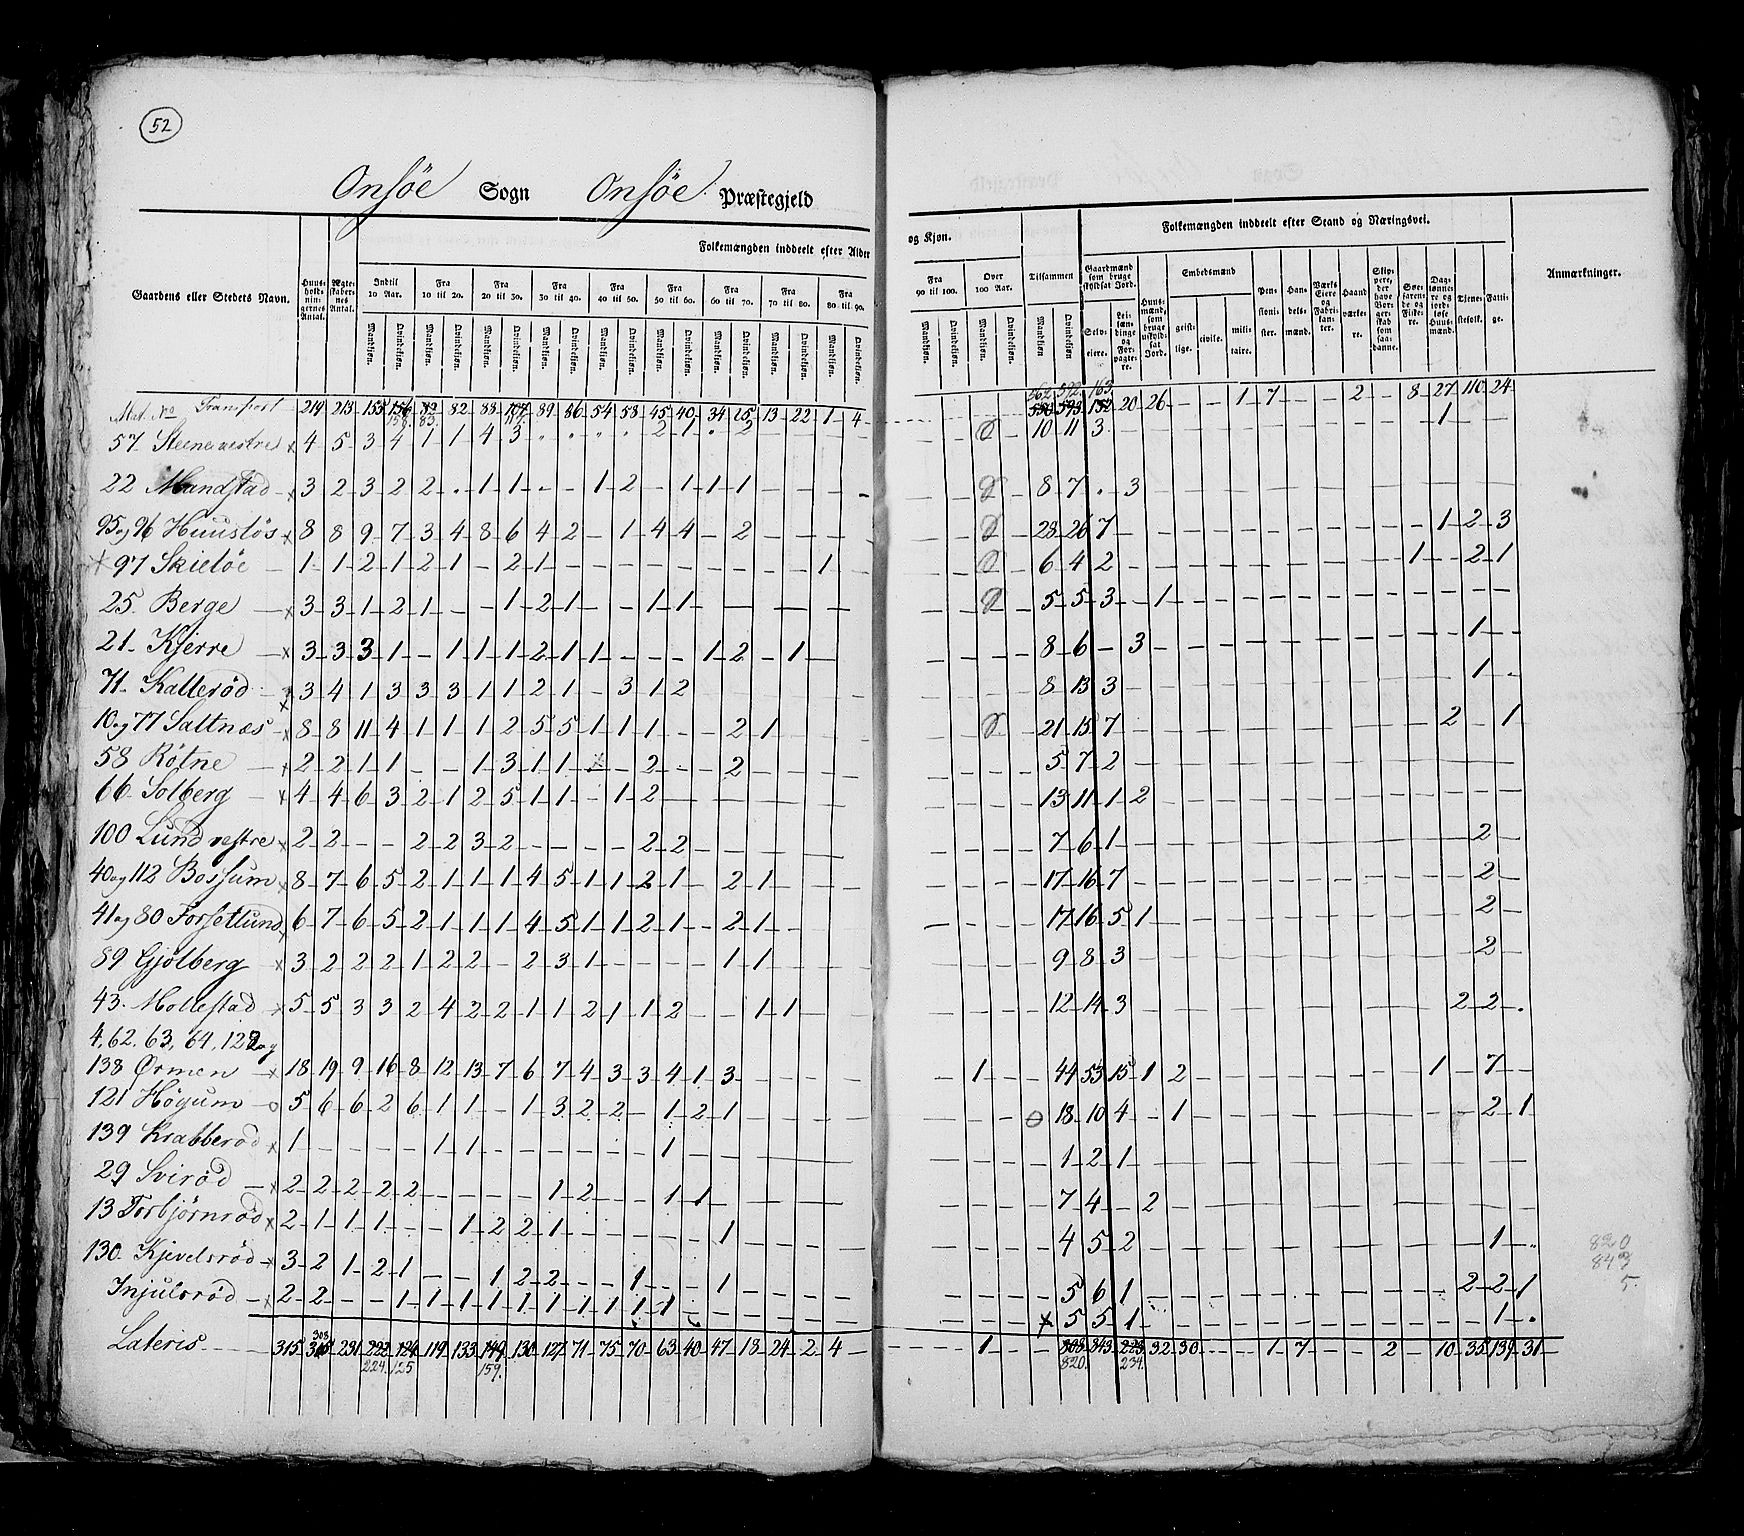 52
Onsøe Sogn Onsøe Præstegjeld
Folkemængden inddeelt efter Alder og Kjøn.
Folkemængden inddeelt efter Stand og Næringsvei.
Gaardens eller Stedets Navn.
Huus-holdnin-gernes Antal.
Ægte-skaber-nes Antal.
Indtil 10 Aar.
Fra 10 til 20.
Fra 20 til 30.
Fra 30 til 40.
Fra 40 til 50.
Fra 50 til 60.
Fra 60 til 70.
Fra 70 til 80.
Fra 80 til 90.
Fra 90 til 100.
Over 100 Aar.
Tilsammen
Mandkjøn. Qvindekjøn.
Gaardmænd som bruge skyldsat Jord.
Selv-eiere.
Lei-lændinge og For-pagte-re.
Huus-mænd, som bruge uskyld-sat Jord.
Embedsmænd
geist-lige.
civile.
mili-taire.
Pen-sioni-ster.
Han-dels-mænd.
Værks Eiere og Fabri-kan-ter.
Haand værke-re.
Skip-pere, der have Bor-gerskab som saa-danne.
Søe-faren-de og Fiske-re.
Dag-lønne-re og jord-løse Huus-mænd.
Tjene-stefolk.
Fatti-ge.
Anmærkninger.
Mat. No Transport 214 213 155 156 82 82 88 107 89 86 54 58 45 40 34 25 13 22 1 4 562 592 163 20 26 1 7 2 8 27 110 24
57 Steene vestre x 4 5 3 4 1 1 4 3 2 1 2 10 11 3 1
22 Mandstad x 3 2 3 2 2 1 1 1 2 1 1 1 8 7 3
95 og 96 Huusløs x 8 8 9 7 3 4 8 6 4 2 1 4 4 2 28 26 7 1 2 3
x 97 Skieløe 1 1 2 1 2 1 2 1 1 6 4 2 1 2 1
25 Berge x 3 3 1 2 1 1 2 1 1 1 5 5 3 1
21 Kjerre x 3 3 3 1 1 1 1 2 1 1 1 2 1 8 6 3 1
71 Kallerød x 3 4 1 3 3 3 1 1 2 1 3 1 2 8 13 3 1
10 og 77 Saltnæs x 8 8 11 4 1 1 1 2 5 5 1 1 1 2 1 21 15 7 2 1
58 Røtne x 2 2 1 1 1 3 1 1 2 2 5 7 2
66 Solberg x 4 4 6 3 2 1 2 5 1 1 1 2 13 11 1 2
100 Lund vestre x 2 2 2 2 3 2 2 2 7 6 1 2
40 og 112 Bossum x 8 7 6 5 2 1 1 1 4 5 1 1 2 1 2 1 17 16 7 2
41 og 80 Forsetlund x 6 7 6 5 2 1 1 1 4 5 1 1 2 1 2 1 17 16 5 1 2
89 Gjølberg x 3 2 2 2 1 2 2 2 3 1 1 1 9 8 3 2
43 Mollestad x 5 5 3 3 2 4 2 2 1 1 2 1 1 2 1 1 12 14 3 2 2
4, 62, 63, 64, 122 og
138 Ørmen x 18 19 9 16 8 12 13 7 6 7 4 3 3 4 1 3 1 44 53 15 1 2 1 7
121 Høyum o 5 6 6 2 6 1 1 1 3 2 2 1 2 1 18 10 4 1 2 1
139 Krabberød x 1 1 1 1 1 2 1
29 Svirød x 2 2 2 2 2 1 2 1 1 7 4 2
13 Torbjørnrød x 2 1 1 1 1 2 2 1 1 4 5 2 1
130 Kjevelsrød x 3 2 1 2 1 1 2 2 1 1 5 6 1 2 2 1
Injulsrød x 2 2 1 1 1 1 1 1 1 1 1 1 x 5 5 1 1
Lateris 315 308 231 222 124 119 133 149 130 127 71 75 70 63 40 47 18 24 2 4 1 808 843 223 32 30 1 7 2 10 35 139 31
224 125 159 820 234
820
843
5